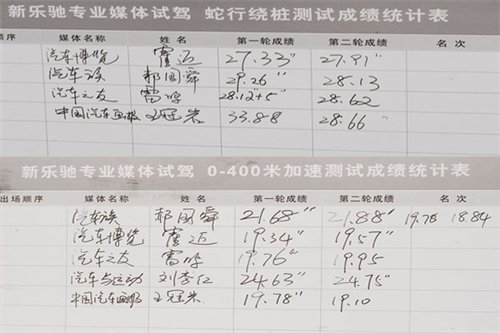 新乐驰专业媒体试驾 蛇行绕桩测试成绩统计表
顺序 媒体名称 姓名 第一轮成绩 第二轮成绩 名次
汽车博览 霍迈 27.33" 27.91"
汽车族 郝国舜 29.26" 28.13
汽车之友 雷鸣 28.12+5" 28.62
中国汽车画报 王冠岩 33.88 28.66"
新乐驰专业媒体试驾 0-400米加速测试成绩统计表
出场顺序 媒体名称 姓名 第一轮成绩 第二轮成绩 名次
汽车族 郝国舜 21.68" 21.88" 19.78 18.84
汽车博览 霍迈 19.34" 19.57"
汽车之友 雷鸣 19.76" 19.95
汽车与运动 刘李仁 24.63" 24.75"
中国汽车画报 王冠岩 19.78" 19.10